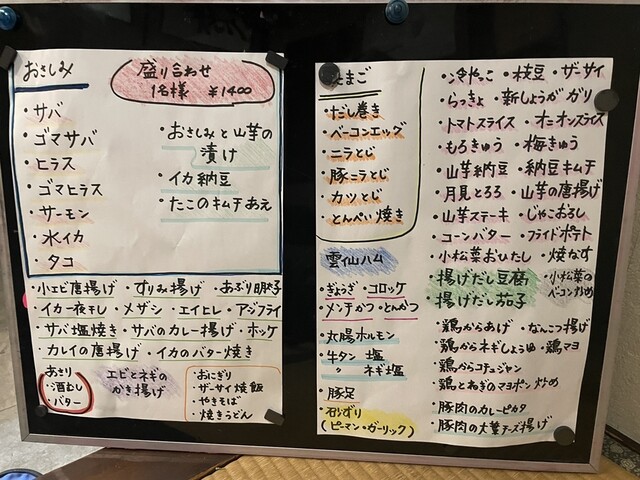 おさしみ
盛り合わせ
1名様 ¥1400
・サバ
・ゴマサバ
・ヒラス
・ゴマヒラス
・サーモン
・水イカ
・タコ
・おさしみと山芋の
漬け
・イカ納豆
・たこのキムチあえ
・小エビ唐揚げ ・すりみ揚げ ・あぶり明太子
・イカ一夜干し ・メザシ ・エイヒレ ・アジフライ
・サバ塩焼き ・サバのカレー揚げ ・ホッケ
・カレイの唐揚げ ・イカのバター焼き
あさり
・酒むし
・バター
エビとネギの
かき揚げ
・おにぎり
・ザーサイ焼飯
・やきそば
・焼きうどん
たまご
・だし巻き
・ベーコンエッグ
・ニラとじ
・豚ニラとじ
・カツとじ
・とんぺい焼き
雲仙ハム
・ぎょうざ ・コロッケ
・メンチかつ ・とんかつ
・丸腸ホルモン
・牛タン 塩
・〃 ネギ塩
・豚足
・砂ずり
(ピーマン・ガーリック)
・冷やっこ ・枝豆 ・ザーサイ
・らっきょ ・新しょうが ガリ
・トマトスライス ・オニオンスライス
・もろきゅう ・梅きゅう
・山芋納豆 ・納豆キムチ
・月見とろろ ・山芋の唐揚げ
・山芋ステーキ ・じゃこおろし
・コーンバター ・フライドポテト
・小松菜おひたし ・焼なす
・揚げだし豆腐
・揚げだし茄子
・小松菜の
ベーコン炒め
・鶏からあげ ・なんこつ揚げ
・鶏からネギしょうゆ ・鶏マヨ
・鶏からコチュジャン
・鶏とねぎのマヨポン炒め
・豚肉のカレーピカタ
・豚肉の大葉チーズ揚げ